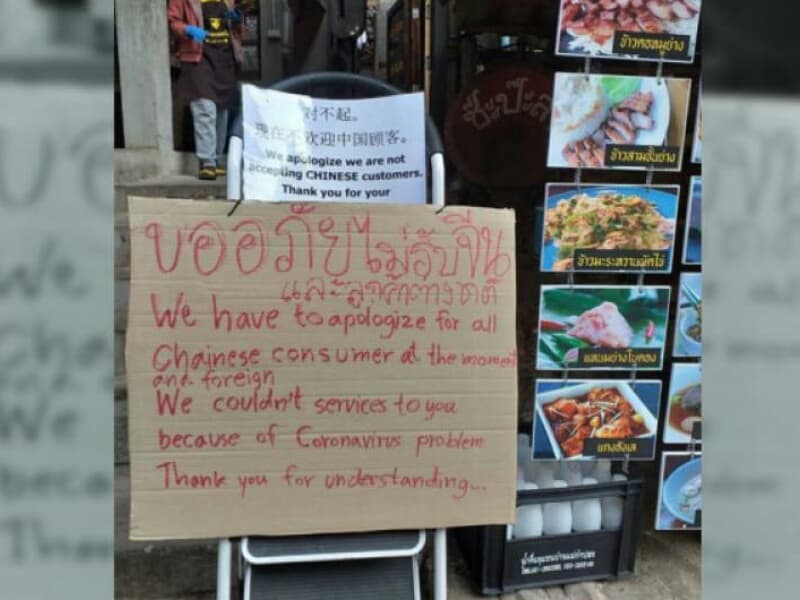 对不起。
现在不欢迎中国顾客。
We apologize we are not
accepting CHINESE customers.
Thank you for your
ขออภัยไม่รับจีน
และลูกค้าต่างชาติ
We have to apologize for all
Chainese consumer at the moment
and foreign
We couldn't services to you
because of Coronavirus problem
Thank you for understanding...
ข้าวคอหมูย่าง
ข้าวสามชั้นย่าง
ข้าวมะระหวานผัดไข่
แหนมย่างใบตอง
แกงฮังเล